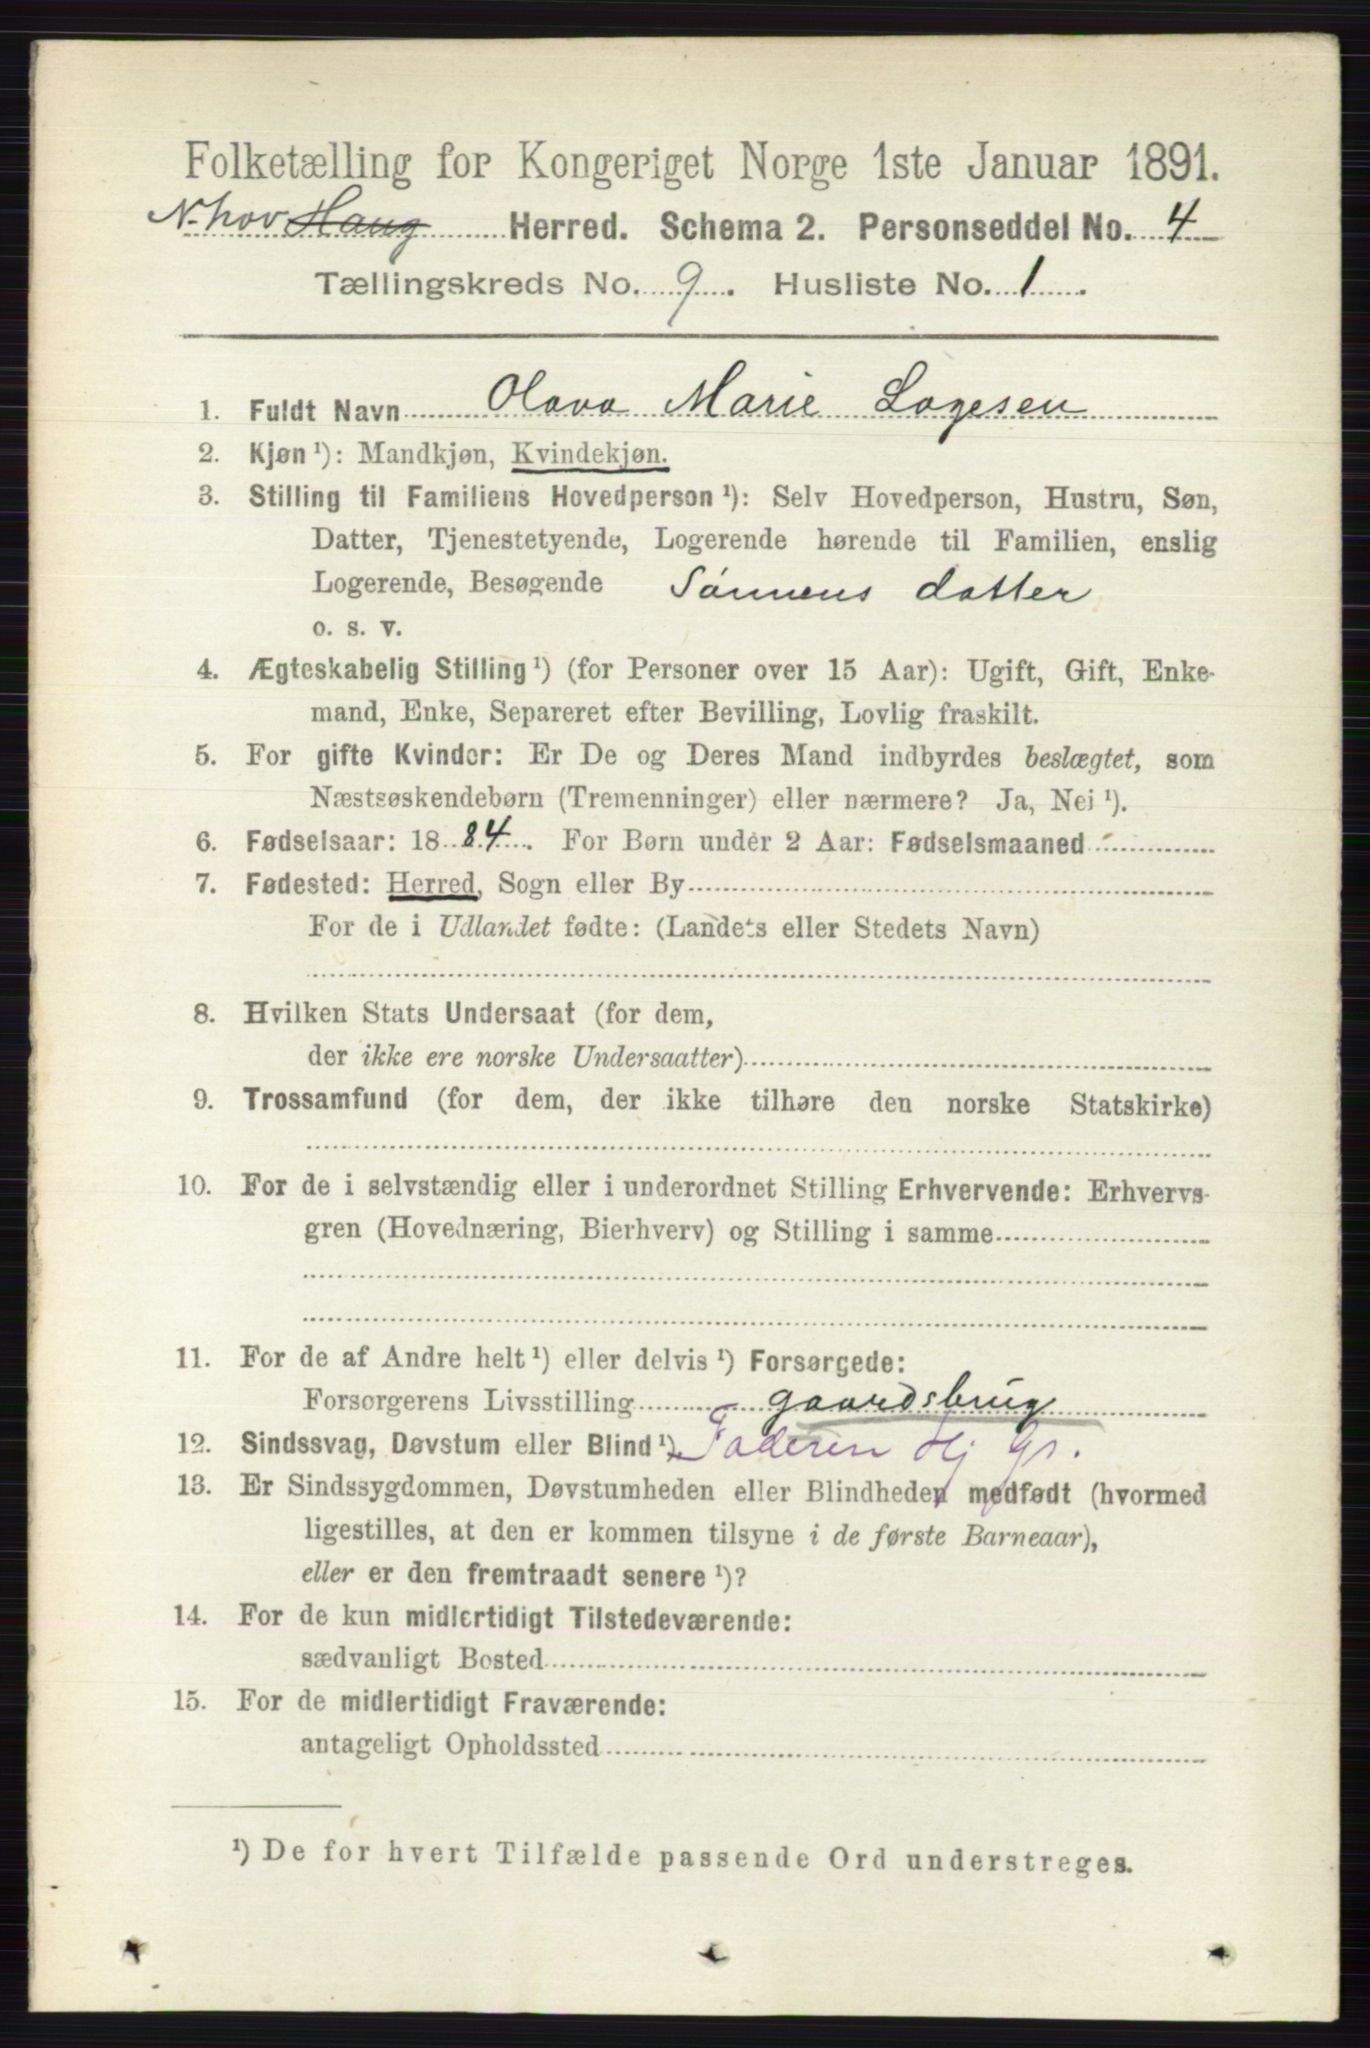 Folketælling for Kongeriget Norge 1ste Januar 1891.
N. hov Haug Herred. Schema 2. Personseddel No. 4
Tællingskreds No. 9. Husliste No. 1.
1. Fuldt Navn Olava Marie Lagesen
2. Kjøn ¹): Mandkjøn, Kvindekjøn.
3. Stilling til Familiens Hovedperson ¹): Selv Hovedperson, Hustru, Søn,
Datter, Tjenestetyende, Logerende hørende til Familien, enslig
Logerende, Besøgende Sønnens datter
o. s. v.
4. Ægteskabelig Stilling ¹) (for Personer over 15 Aar): Ugift, Gift, Enke-
mand, Enke, Separeret efter Bevilling, Lovlig fraskilt.
5. For gifte Kvinder: Er De og Deres Mand indbyrdes beslægtet, som
Næstsøskendebørn (Tremenninger) eller nærmere? Ja, Nei ¹).
6. Fødselsaar: 1884. For Børn under 2 Aar: Fødselsmaaned
7. Fødested: Herred, Sogn eller By
For de i Udlandet fødte: (Landets eller Stedets Navn)
8. Hvilken Stats Undersaat (for dem,
der ikke ere norske Undersaatter)
9. Trossamfund (for dem, der ikke tilhøre den norske Statskirke)
10. For de i selvstændig eller i underordnet Stilling Erhvervende: Erhvervs-
gren (Hovednæring, Bierhverv) og Stilling i samme
11. For de af Andre helt ¹) eller delvis ¹) Forsørgede:
Forsørgerens Livsstilling gaardsbrug
12. Sindssvag, Døvstum eller Blind ¹). Faderen Hj Gr.
13. Er Sindssygdommen, Døvstumheden eller Blindheden medfødt (hvormed
ligestilles, at den er kommen tilsyne i de første Barneaar),
eller er den fremtraadt senere ¹)?
14. For de kun midlertidigt Tilstedeværende:
sædvanligt Bosted
15. For de midlertidigt Fraværende:
antageligt Opholdssted
¹) De for hvert Tilfælde passende Ord understreges.